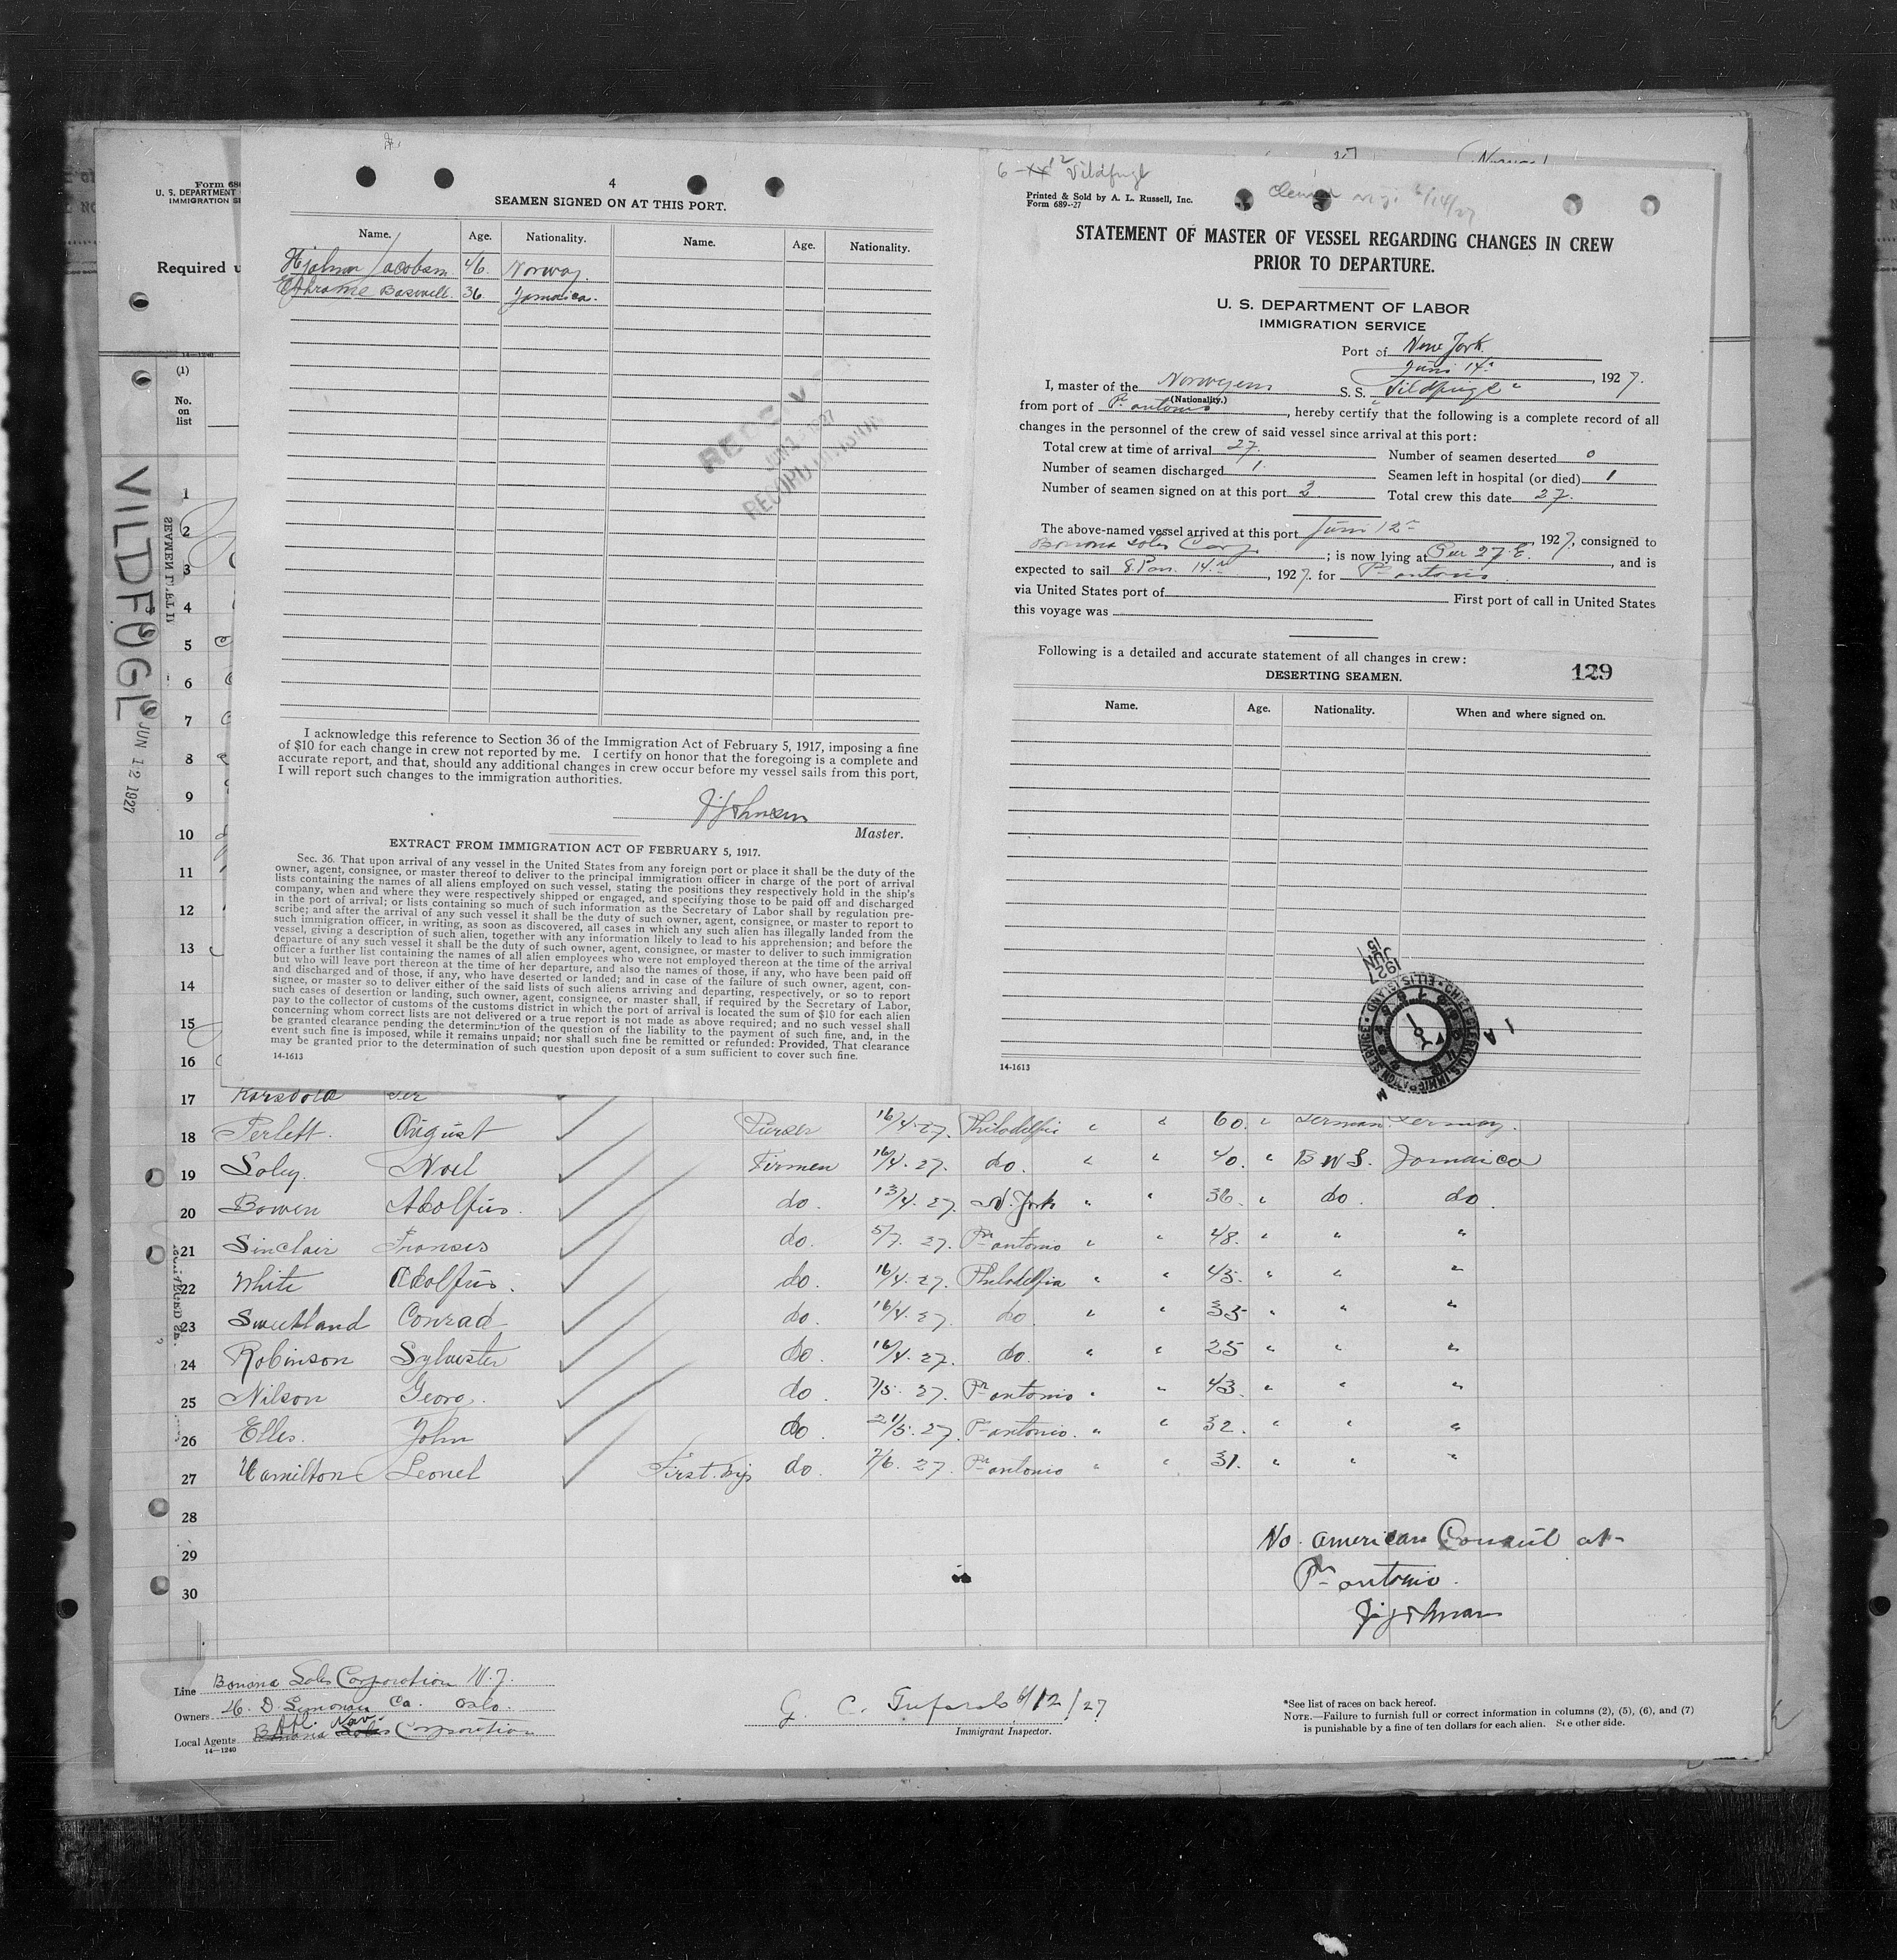 4
SEAMEN SIGNED ON AT THIS PORT.
Name. Age. Nationality. Name. Age. Nationality.
Hjalmar Jacobsen 46. Norway.
Boswell. 36. Jamaica.
I acknowledge this reference to Section 36 of the Immigration Act of February 5, 1917, imposing a fine
of $10 for each change in crew not reported by me. I certify on honor that the foregoing is a complete and
accurate report, and that, should any additional changes in crew occur before my vessel sails from this port,
I will report such changes to the immigration authorities.
Master.
EXTRACT FROM IMMIGRATION ACT OF FEBRUARY 5, 1917.
Sec. 36. That upon arrival of any vessel in the United States from any foreign port or place it shall be the duty of the
owner, agent, consignee, or master thereof to deliver to the principal immigration officer in charge of the port of arrival
lists containing the names of all aliens employed on such vessel, stating the positions they respectively hold in the ship's
company, when and where they were respectively shipped or engaged, and specifying those to be paid off and discharged
in the port of arrival; or lists containing so much of such information as the Secretary of Labor shall by regulation pre-
scribe; and after the arrival of any such vessel it shall be the duty of such owner, agent, consignee, or master to report to
such immigration officer, in writing, as soon as discovered, all cases in which any such alien has illegally landed from the
vessel, giving a description of such alien, together with any information likely to lead to his apprehension; and before the
departure of any such vessel it shall be the duty of such owner, agent, consignee, or master to deliver to such immigration
officer a further list containing the names of all alien employees who were not employed thereon at the time of the arrival
but who will leave port thereon at the time of her departure, and also the names of those, if any, who have been paid off
and discharged and of those, if any, who have deserted or landed; and in case of the failure of such owner, agent, con-
signee, or master so to deliver either of the said lists of such aliens arriving and departing, respectively, or so to report
such cases of desertion or landing, such owner, agent, consignee, or master shall, if required by the Secretary of Labor,
pay to the collector of customs of the customs district in which the port of arrival is located the sum of $10 for each alien
concerning whom correct lists are not delivered or a true report is not made as above required; and no such vessel shall
be granted clearance pending the determination of the question of the liability to the payment of such fine, and, in the
event such fine is imposed, while it remains unpaid; nor shall such fine be remitted or refunded: Provided, That clearance
may be granted prior to the determination of such question upon deposit of a sum sufficient to cover such fine.
14-1613
6-12 Vildfugl
Printed & Sold by A. L. Russell, Inc.
Form 689--27
6/14/27
STATEMENT OF MASTER OF VESSEL REGARDING CHANGES IN CREW
PRIOR TO DEPARTURE.
U. S. DEPARTMENT OF LABOR
IMMIGRATION SERVICE
Port of New York.
Juni 14, 1927.
I, master of the Norwegian S. S. "Vildfugl"
(Nationality.)
from port of Pt antonio, hereby certify that the following is a complete record of all
changes in the personnel of the crew of said vessel since arrival at this port:
Total crew at time of arrival 27. Number of seamen deserted 0
Number of seamen discharged 1. Seamen left in hospital (or died) 1
Number of seamen signed on at this port 2. Total crew this date 27.
The above-named vessel arrived at this port Juni 12, 1927, consigned to
Banana Sales Corp.; is now lying at Pier 27 E., and is
expected to sail 14, 1927. for Pt antonio.
via United States port of First port of call in United States
this voyage was
Following is a detailed and accurate statement of all changes in crew:
129
DESERTING SEAMEN.
Name. Age. Nationality. When and where signed on.
1927
JUN
15
CHIEF CLERK, U.S. IMMIGRATION SERVICE • ELLIS ISLAND
14-1613
U. S. DEPARTMENT
Required
14—1240
(1)
No.
on
list
VILDFUGL
JUN 12 1927
1
2
3
4
5
6
7
8
9
10
11
12
13
14
15
16
17
18 Perlett. August Purser 16/4.27. Philadelfia " " 60. " German Germany.
19 Soley. Noel Firmen 16/4.27. do. " " 40. " B W I. Jamaica
20 Bowen Adolfus. do. 13/4.27. N. York " " 36. " do do.
21 Sinclair Franses do. 5/7.27. Pt antonio " " 48. " " "
22 White Adolfus. do. 16/4.27. Philadelfia " " 43. " " "
23 Sweetland Conrad do. 16/4.27 do. " " 33 " " "
24 Robinson Sylvester do. 16/4.27. do. " " 25 " " "
25 Nilson Georg. do. 7/5.27. Pt antonio " " 43. " " "
26 Elles. John do. 21/5.27. Pt antonio. " " 32. " " "
27 Hamilton Leonel First trip do. 7/6.27. Pt antonio " " 31. " " "
28
29
30
No. american Consul at
Pt antonio.
Line Banana Sales Corporation N.Y.
Owners Oslo.
Local Agents Corporation
14—1240
6/12/27
Immigrant Inspector.
*See list of races on back hereof.
NOTE.—Failure to furnish full or correct information in columns (2), (5), (6), and (7)
is punishable by a fine of ten dollars for each alien. See other side.